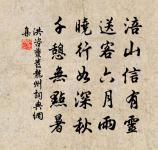 涪山信有靈
送客六月雨
曉行如深秋
千憩無點暑
洪咨夔舊龍州詞典網
集